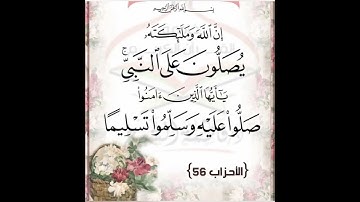 بسم الله الرحمن الرحيم
إِنَّ ٱللَّهَ وَمَلَـٰٓئِكَتَهُۥ
يُصَلُّونَ عَلَى ٱلنَّبِيِّ ۚ
يَـٰٓأَيُّهَا ٱلَّذِينَ ءَامَنُوا۟
صَلُّوا۟ عَلَيْهِ وَسَلِّمُوا۟ تَسْلِيمًا
{الأحزاب 56}